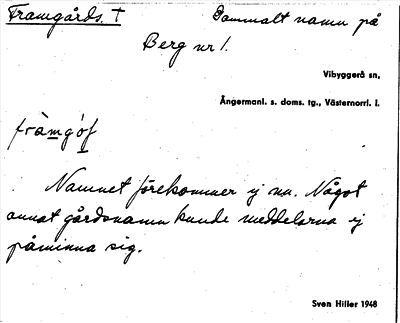 Framgårds. † Gammalt namn på
Berg nr 1.
Vibyggerå sn,
Ångermanl. s. doms. tg., Västernorrl. l.
fràmgó̀f
Namnet förekommer ej nu. Något
annat gårdsnamn kunde meddelarna ej
påminna sig.
Sven Hiller 1948